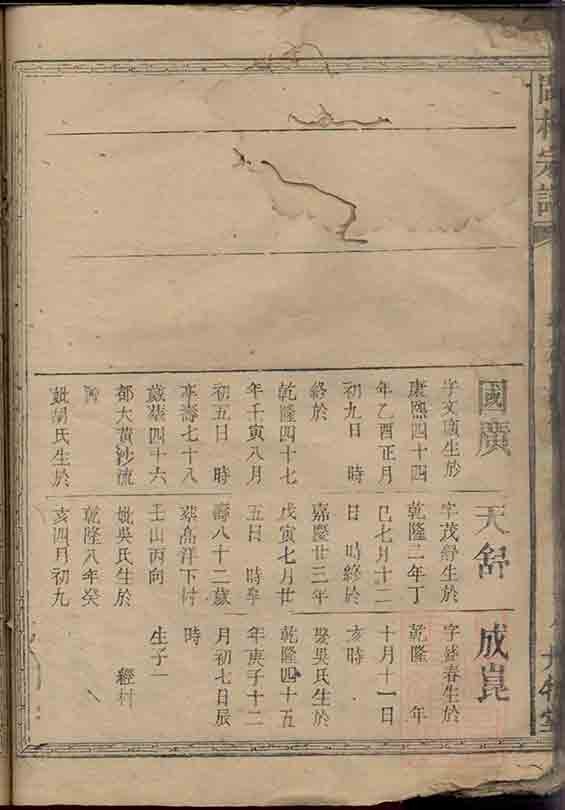 國廣
字文廣生於
康熙四十四
年乙酉正月
初九日 時
終於
乾隆四十七
年壬寅八月
初五日 時
享壽七十八
歲葬四十六
都大黃沙流
妣胡氏生於
天舒
字茂舒生於
乾隆二年丁
巳七月十二
日 時終於
嘉慶廿三年
戊寅七月廿
五日 時卒
壽八十二歲
葬高洋下村
壬山丙向
妣吳氏生於
乾隆八年癸
亥四月初九
成崑
字盛春生於
乾隆 年
十月十一日
亥時
娶吳氏生於
乾隆四十五
年庚子十二
月初七日辰
時
生子一
經村